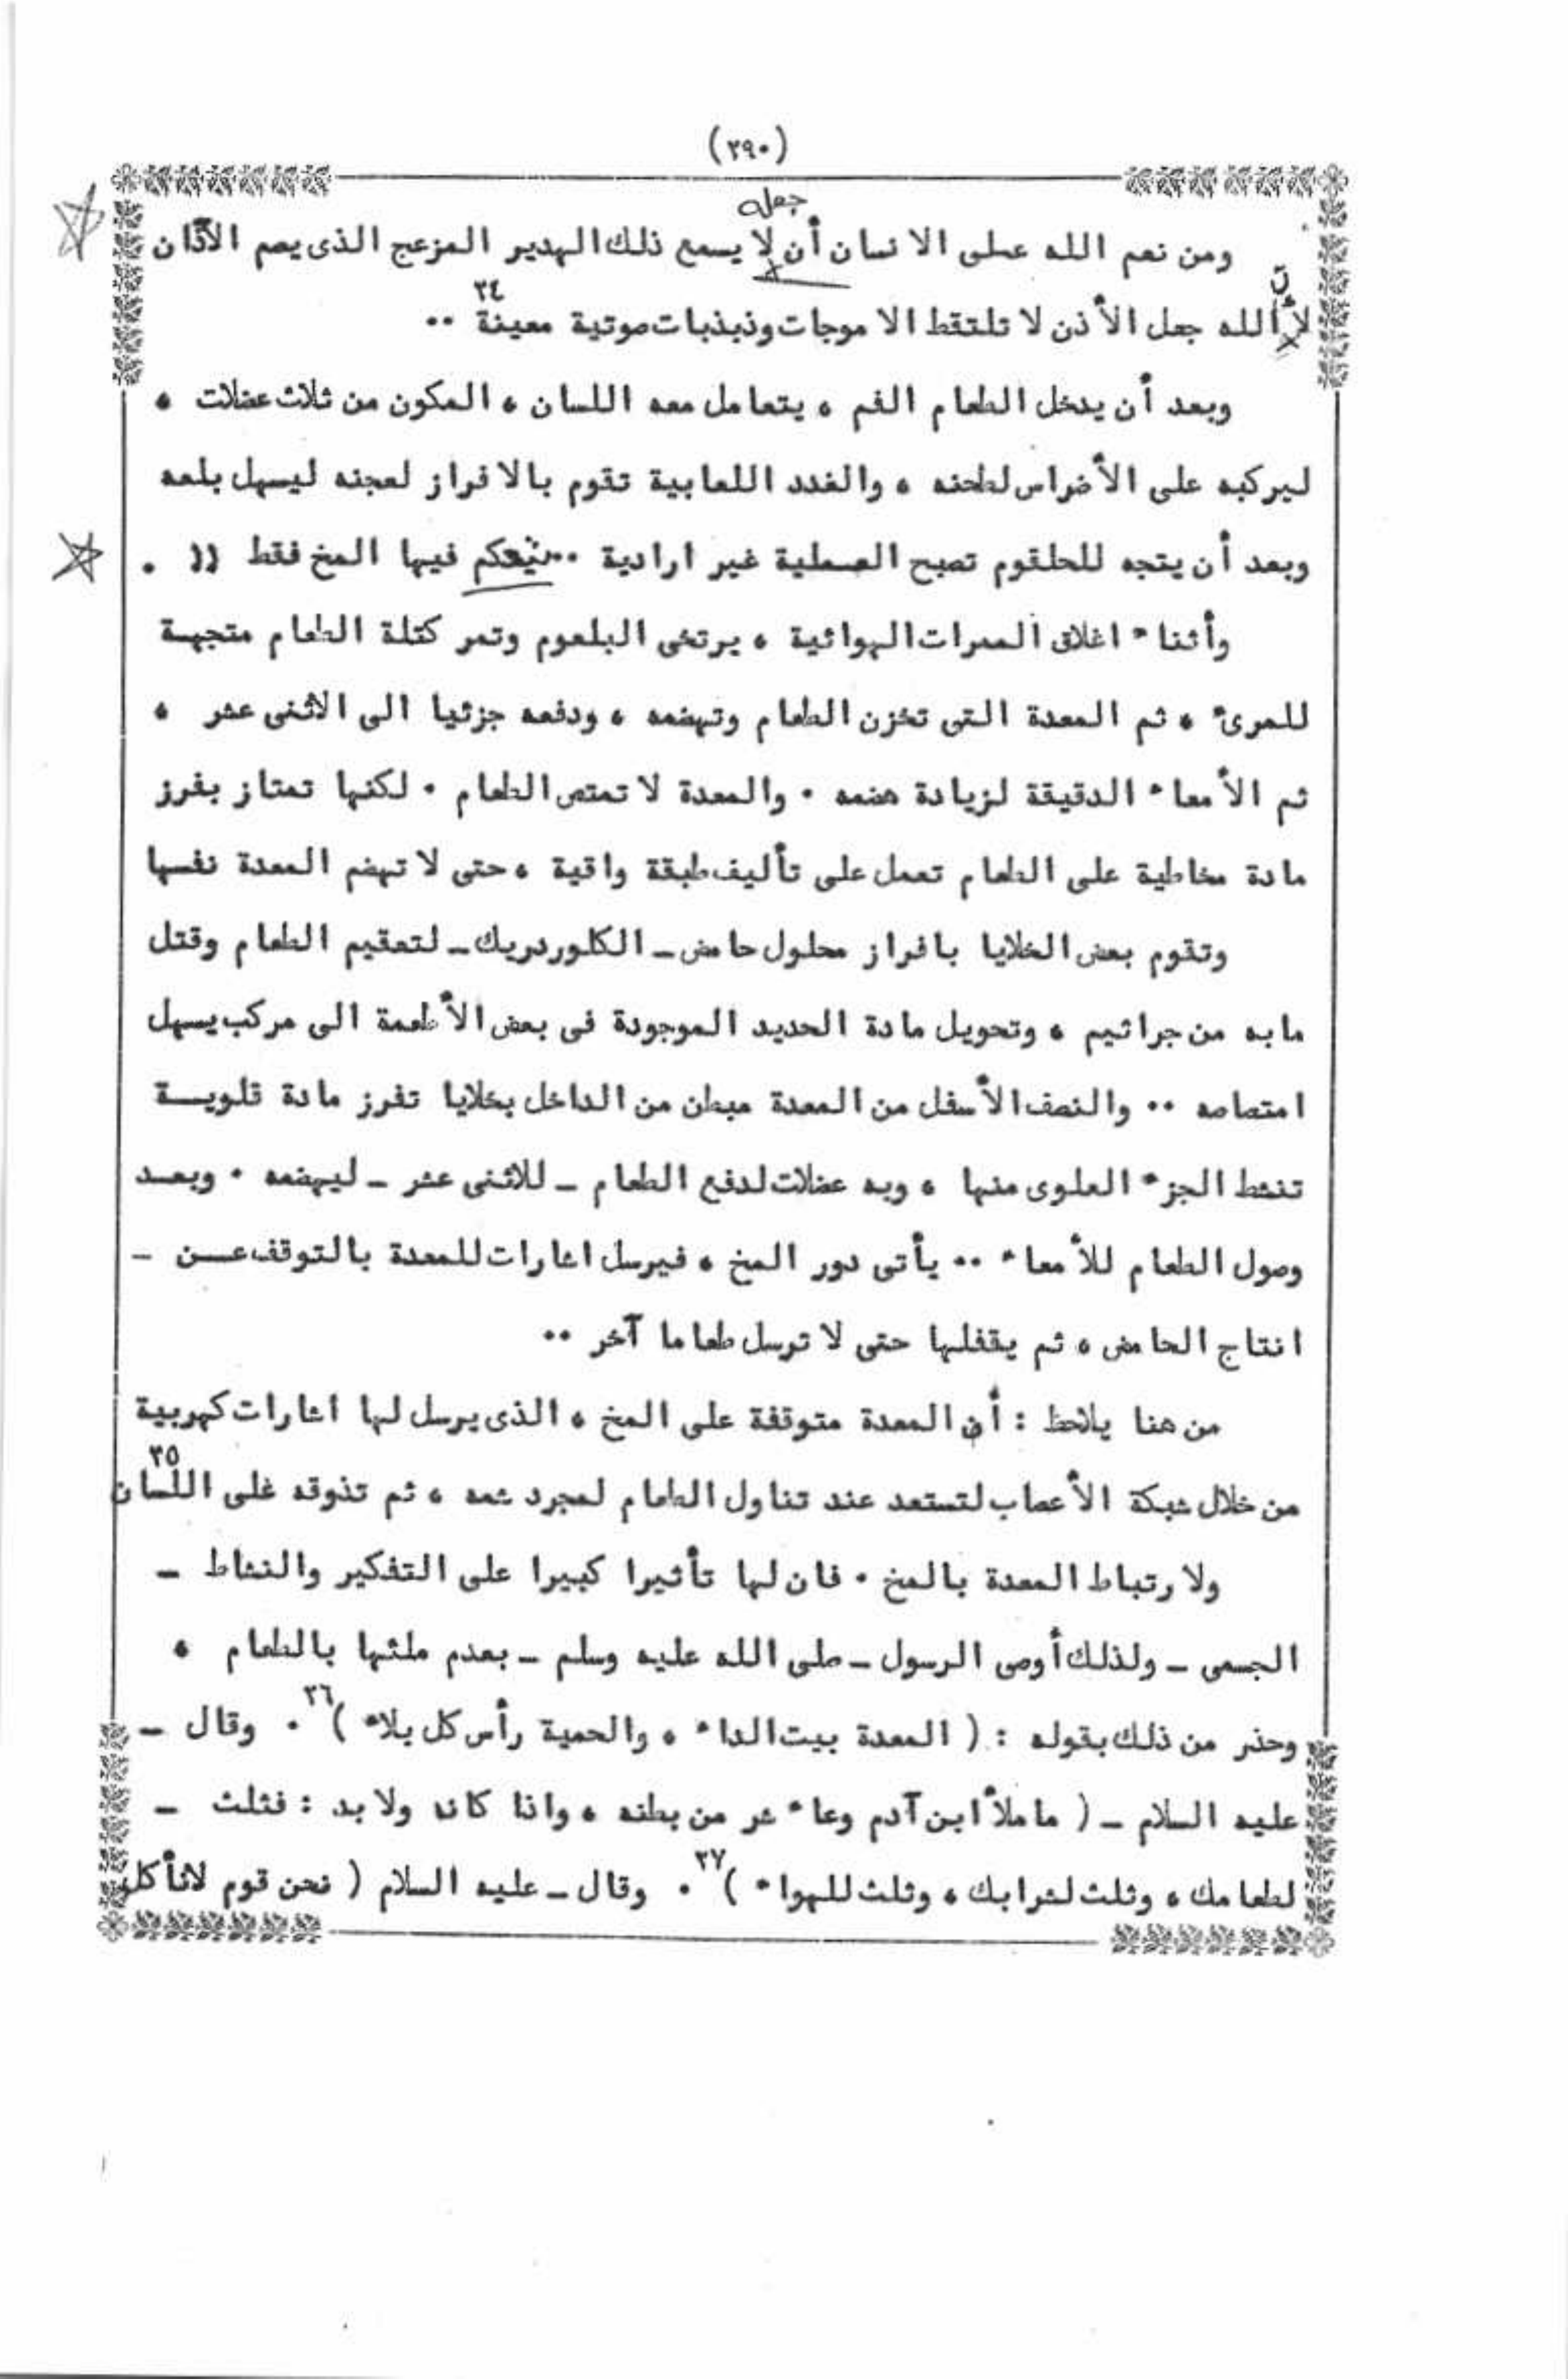 (٣٩٠)
جعله
ومن نعم الله على الانسان أن لا يسمع ذلك الهدير المزعج الذى يصم الآذان
لأن الله جعل الأذن لا تلتقط الا موجات وذبذبات صوتية معينة ٣٤ ٠٠
وبعد أن يدخل الطعام الفم ، يتعامل معه اللسان ، المكون من ثلاث عضلات ،
ليركبه على الأضراس لطحنه ، والغدد اللعابية تقوم بالافراز لعجنه ليسهل بلعه
وبعد أن يتجه للحلقوم تصبح العملية غير ارادية ٠٠ يتحكم فيها المخ فقط (( ٠
وأثناء اغلاق الممرات الهوائية ، يرتخى البلعوم وتمر كتلة الطعام متجهة
للمرىء ، ثم المعدة التى تخزن الطعام وتهضمه ، ودفعه جزئيا الى الاثنى عشر ،
ثم الأمعاء الدقيقة لزيادة هضمه ٠ والمعدة لا تمتص الطعام ٠ لكنها تمتاز بفرز
مادة مخاطية على الطعام تعمل على تأليف طبقة واقية ، حتى لا تهضم المعدة نفسها
وتقوم بعض الخلايا بافراز محلول حامض ـ الكلوردريك ـ لتعقيم الطعام وقتل
مابه من جراثيم ، وتحويل مادة الحديد الموجودة فى بعض الأطعمة الى مركب يسهل
امتصاصه ٠٠ والنصف الأسفل من المعدة مبطن من الداخل بخلايا تفرز مادة قلويـة
تنشط الجزء العلوى منها ، وبه عضلات لدفع الطعام ـ للاثنى عشر ـ ليهضمه ٠ وبعـد
وصول الطعام للأمعاء ٠٠ يأتى دور المخ ، فيرسل اشارات للمعدة بالتوقف عـن ـ
انتاج الحامض ، ثم يقفلها حتى لا ترسل طعاما آخر ٠٠
من هنا يلاحظ : أن المعدة متوقفة على المخ ، الذى يرسل لها اشارات كهربية
من خلال شبكة الأعصاب لتستعد عند تناول الطعام لمجرد شمه ، ثم تذوقه غلى اللسان ٣٥
ولارتباط المعدة بالمخ ٠ فان لها تأثيرا كبيرا على التفكير والنشاط ـ
الجسمى ـ ولذلك أوصى الرسول ـ صلى الله عليه وسلم ـ بعدم ملئها بالطعام ،
وحذر من ذلك بقوله : ( المعدة بيت الداء ، والحمية رأس كل بلاء )٣٦ ٠ وقال ـ
عليه السلام ـ ( ما ملأ ابن آدم وعاء شر من بطنه ، واذا كانه ولابد : فثلث ـ
لطعامك ، وثلث لشرابك ، وثلث للهواء )٣٧ ٠ وقال ـ عليه السلام ( نحن قوم لانأكل